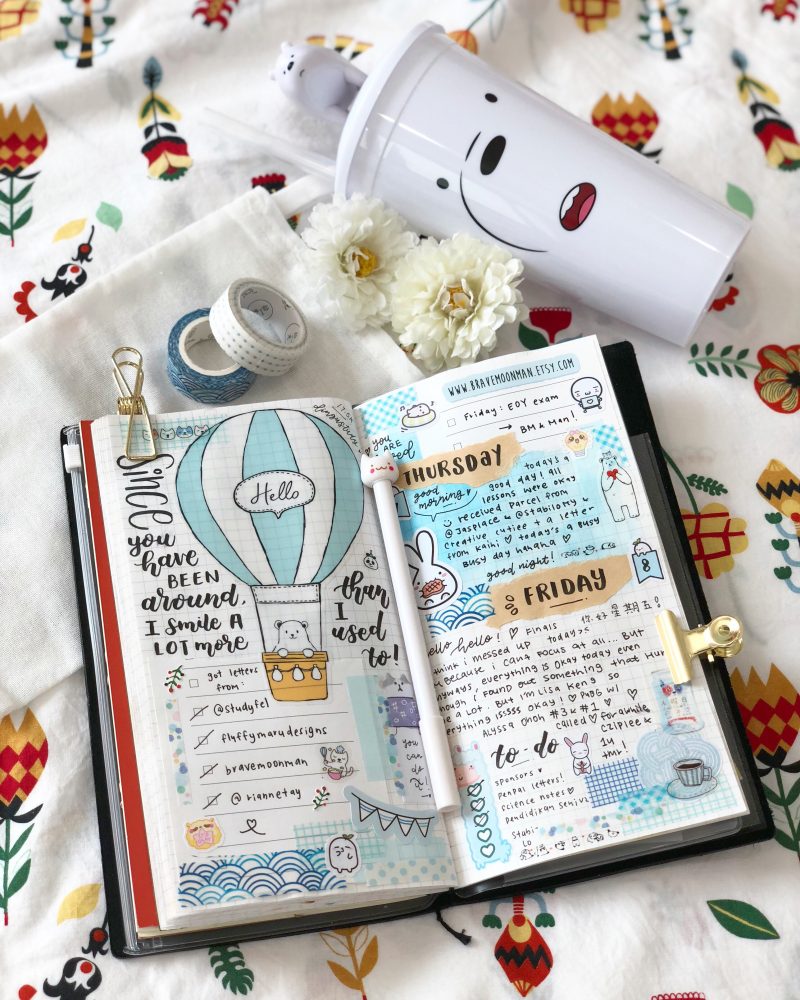 Since
you
have
BEEN
around,
I smile A
LOT MORE
than
I
used
to!
Hello
got letters
from:
@studyfel
fluffymarudesigns
bravemoonman
@riannetay
www.BRAVEMOONMAN.ETSY.COM
Friday: EOY exam
→ BM & Man!
you
ARE
THURSDAY
good
morning
today's a
good day! all
lessons were okay
received parcel from
@Jasplace & @stabilomy &
creative cutiee + a letter
from kaihi ♡ today's a busy
busy day hahaha ♡
good night!
8
FRIDAY
hello hello! ♡ Finals
think i messed up today
because i cant focus at all... But
anyways, everything is okay today even
though I found out something that
me a lot. But i'm Lisa Keng so
everything is okay! ♡ PUBG w/ ♡
Alyssa Ohoh #3 & #1 ♡
called ♡ for awhile
to-do
sponsors
penpal letters!
science notes ♡
pendidikan seni
Stabi-
lo